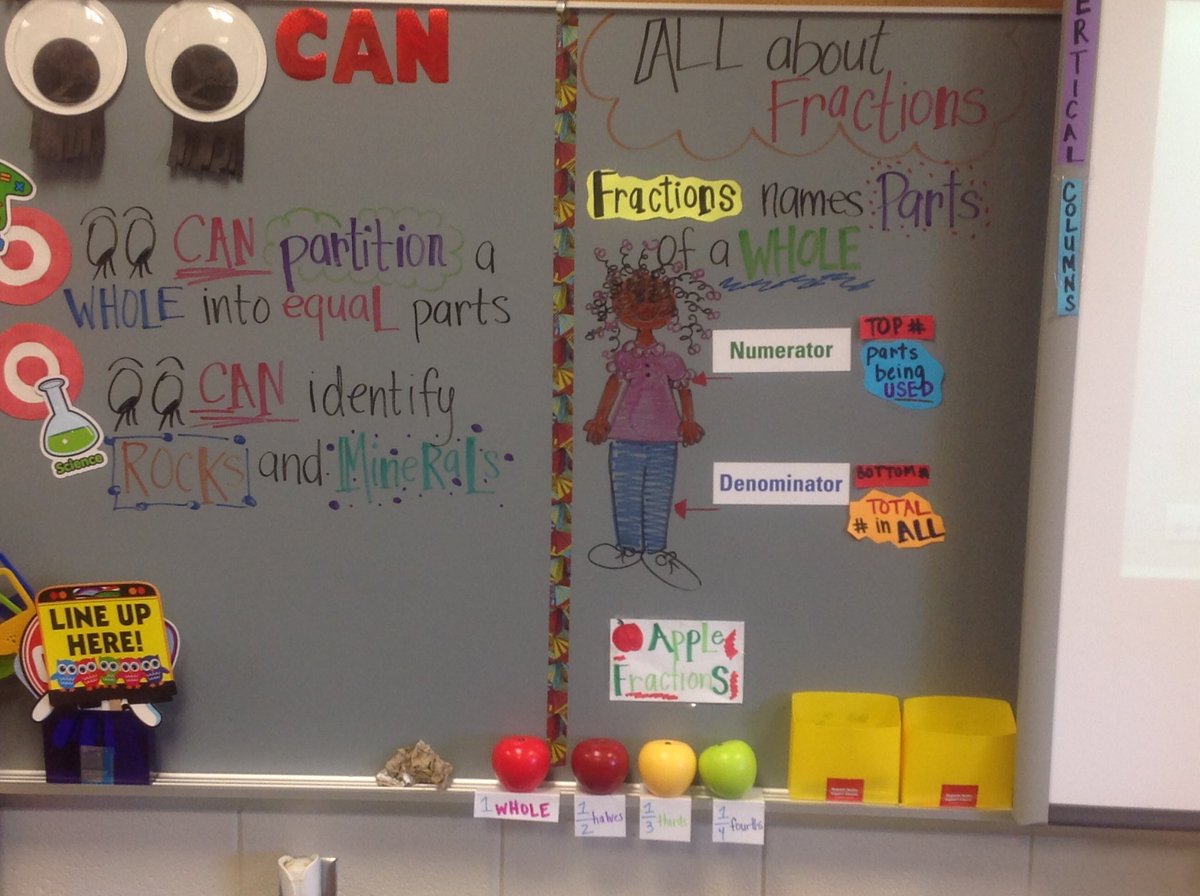 CAN
CAN partition a
WHOLE into equal parts
CAN identify
ROCKS and Minerals
Science
LINE UP
HERE!
ALL about
Fractions
Fractions names Parts
of a WHOLE
Numerator
TOP #
parts
being
USED
Denominator
BOTTOM #
TOTAL
# in ALL
Apple
Fractions
1 WHOLE
1/2 halves
1/3 thirds
1/4 fourths
ERTICAL
COLUMNS